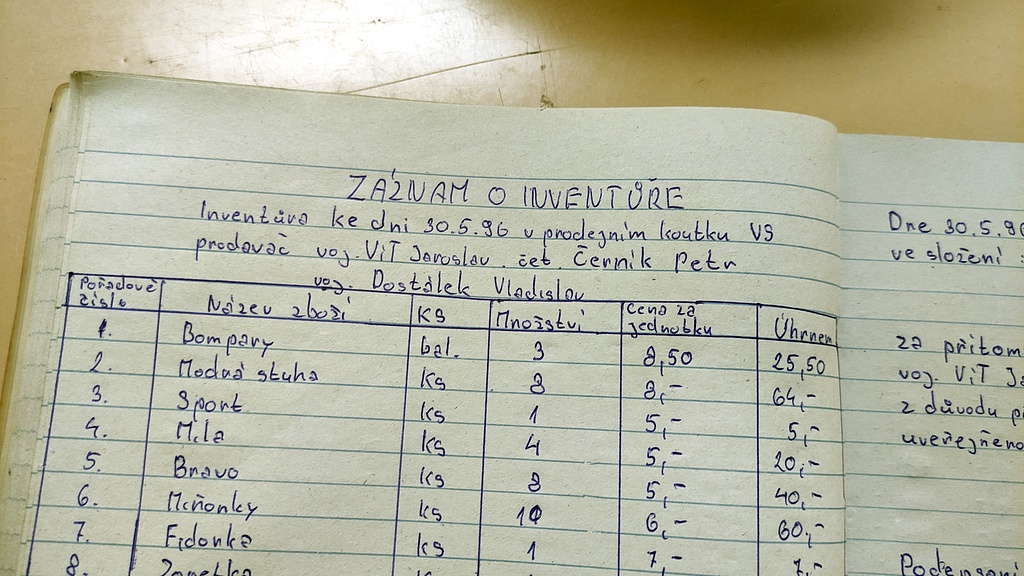 ZÁZNAM O INVENTŮŘE
Inventůra ke dni 30.5.96 v prodejním koutku VS
prodavač voj. VíT Jaroslav, čet. Černík Petr
voj. Dostálek Vladislav
Pořadové číslo Název zboží KS Množství Cena za jednotku Úhrnem
1. Bompary bal. 3 8,50 25,50
2. Modrá stuha Ks 8 8,- 64,-
3. Sport ks 1 5,- 5,-
4. Mila ks 4 5,- 20,-
5. Bravo ks 8 5,- 40,-
6. Miňonky ks 10 6,- 60,-
7. Fidorka ks 1 7,- 7,-
8.
Dne 30.5.96
ve složení :
za přítom
voj. VíT Ja
z důvodu
uveřejněno
Podepsaní